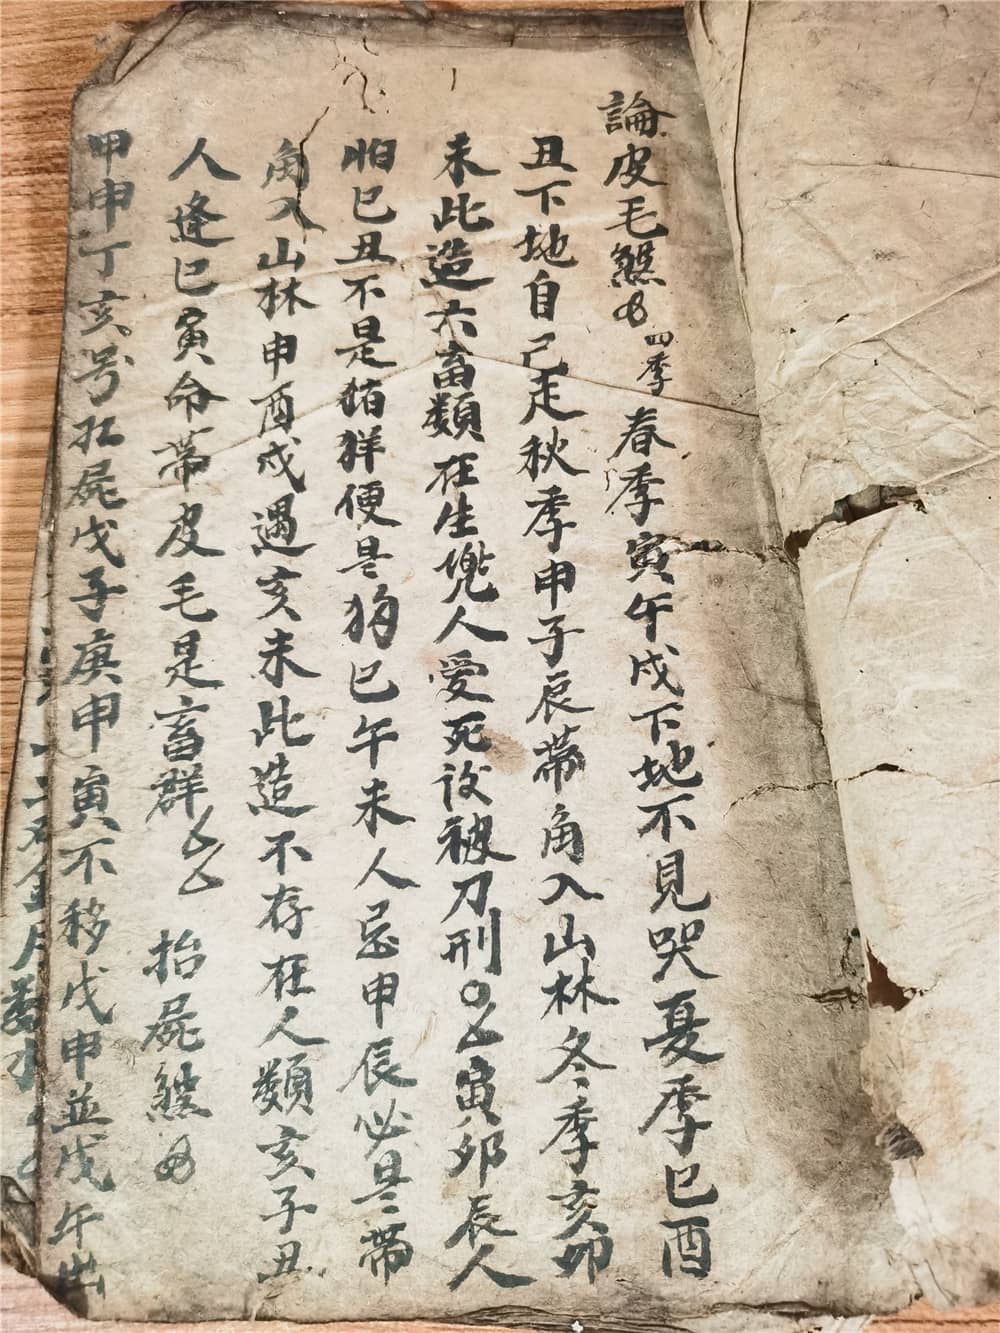 論皮毛煞 四季 春季寅午戍下地不見哭夏季巳酉
丑下地自己走秋季申子辰帶角入山林冬季亥卯
未此造六畜類在生兇人愛死後被刀刑 寅卯辰人
怕巳丑不是猪羊便是狗巳午未人忌申辰必是帶
角入山林申酉戍遇亥未此造不存在人類亥子丑
人逢巳寅命帶皮毛是畜群 抬屍煞
甲申丁亥号扛屍戊子庚申寅不移戊申並戊午出